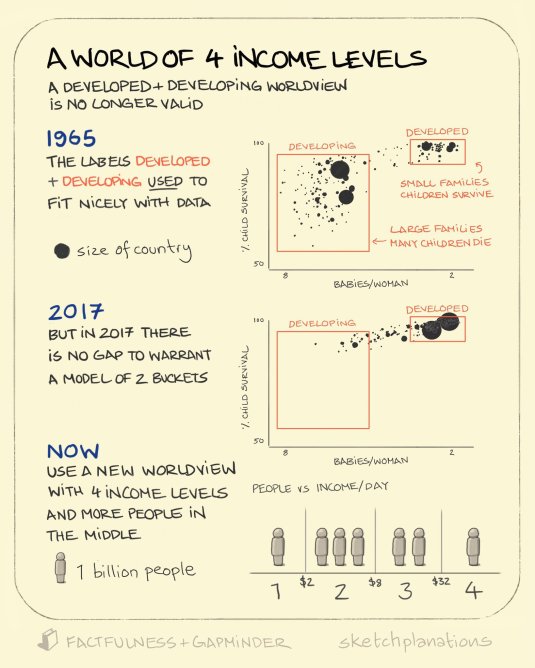 A WORLD OF 4 INCOME LEVELS
A DEVELOPED + DEVELOPING WORLDVIEW
IS NO LONGER VALID
1965
THE LABELS DEVELOPED
+ DEVELOPING USED TO
FIT NICELY WITH DATA
size of country
DEVELOPING
DEVELOPED
100
% CHILD SURVIVAL
50
8
BABIES/WOMAN
2
SMALL FAMILIES
CHILDREN SURVIVE
LARGE FAMILIES
MANY CHILDREN DIE
2017
BUT IN 2017 THERE
IS NO GAP TO WARRANT
A MODEL OF 2 BUCKETS
DEVELOPING
DEVELOPED
100
% CHILD SURVIVAL
50
8
BABIES/WOMAN
2
NOW
USE A NEW WORLDVIEW
WITH 4 INCOME LEVELS
AND MORE PEOPLE IN
THE MIDDLE
1 billion people
PEOPLE vs INCOME/DAY
$2
$8
$32
1
2
3
4
FACTFULNESS + GAPMINDER
sketchplanations